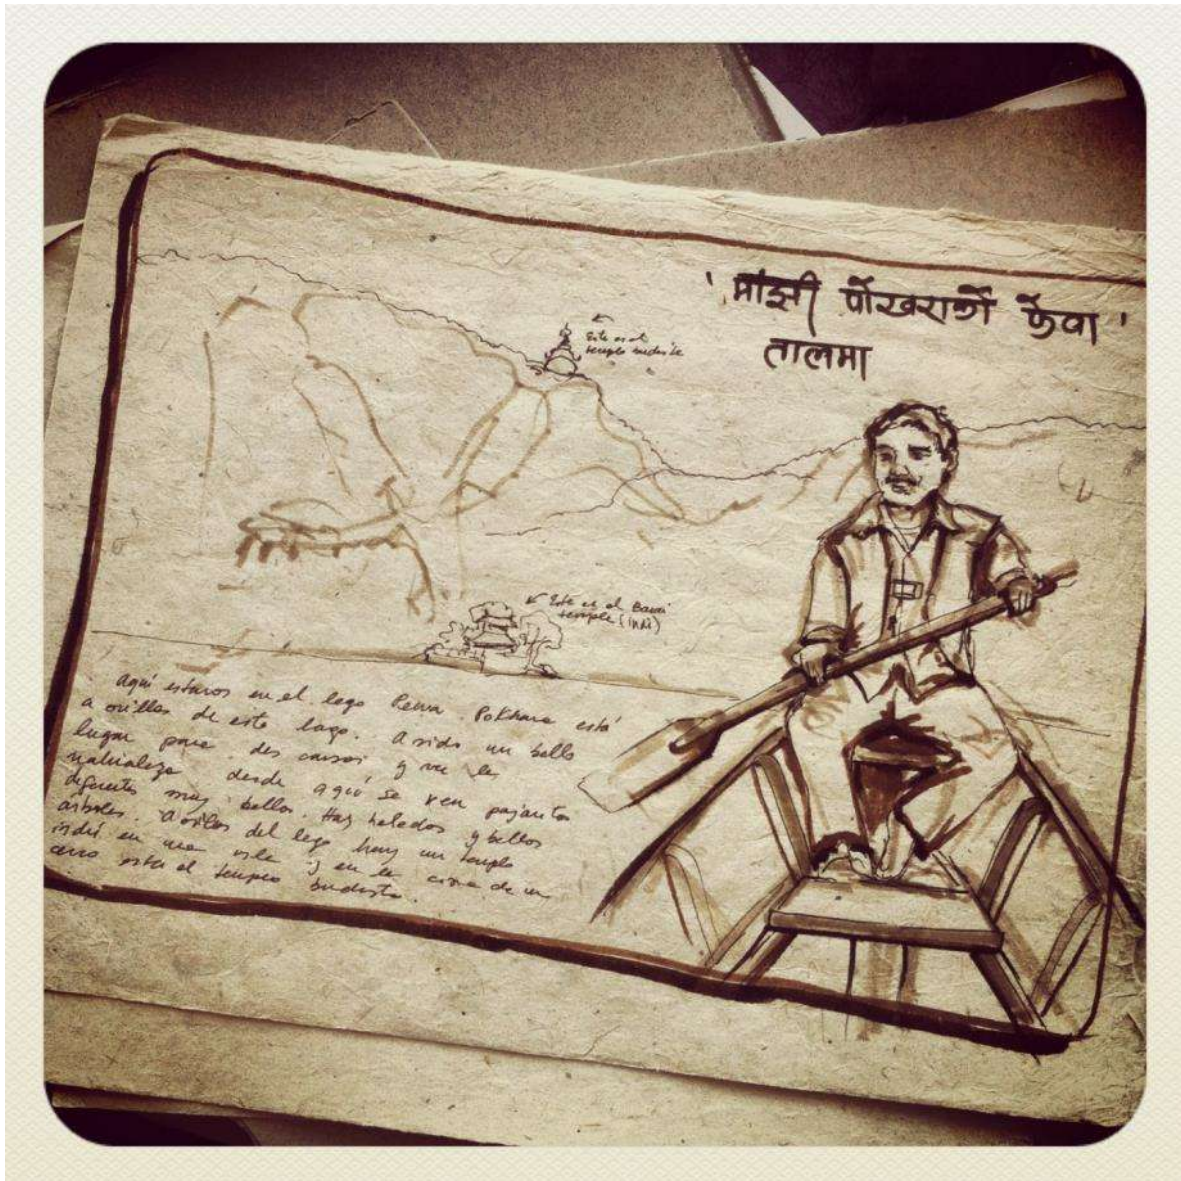 'मांझी पोखराको फेवा'
तालमा
Este es el
templo budista
Este es el Barai
temple (indi)
Aquí estamos en el lago Fewa. Pokhara está
a orillas de este lago. A sido un bello
lugar para descansar y ver la
naturaleza desde aquí se ven pajaritos
diferentes muy bellos. Hay helados y bellos
árboles. A orillas del lago hay un templo
indú en una isla y en la cima de un
cerro esta el templo budista.